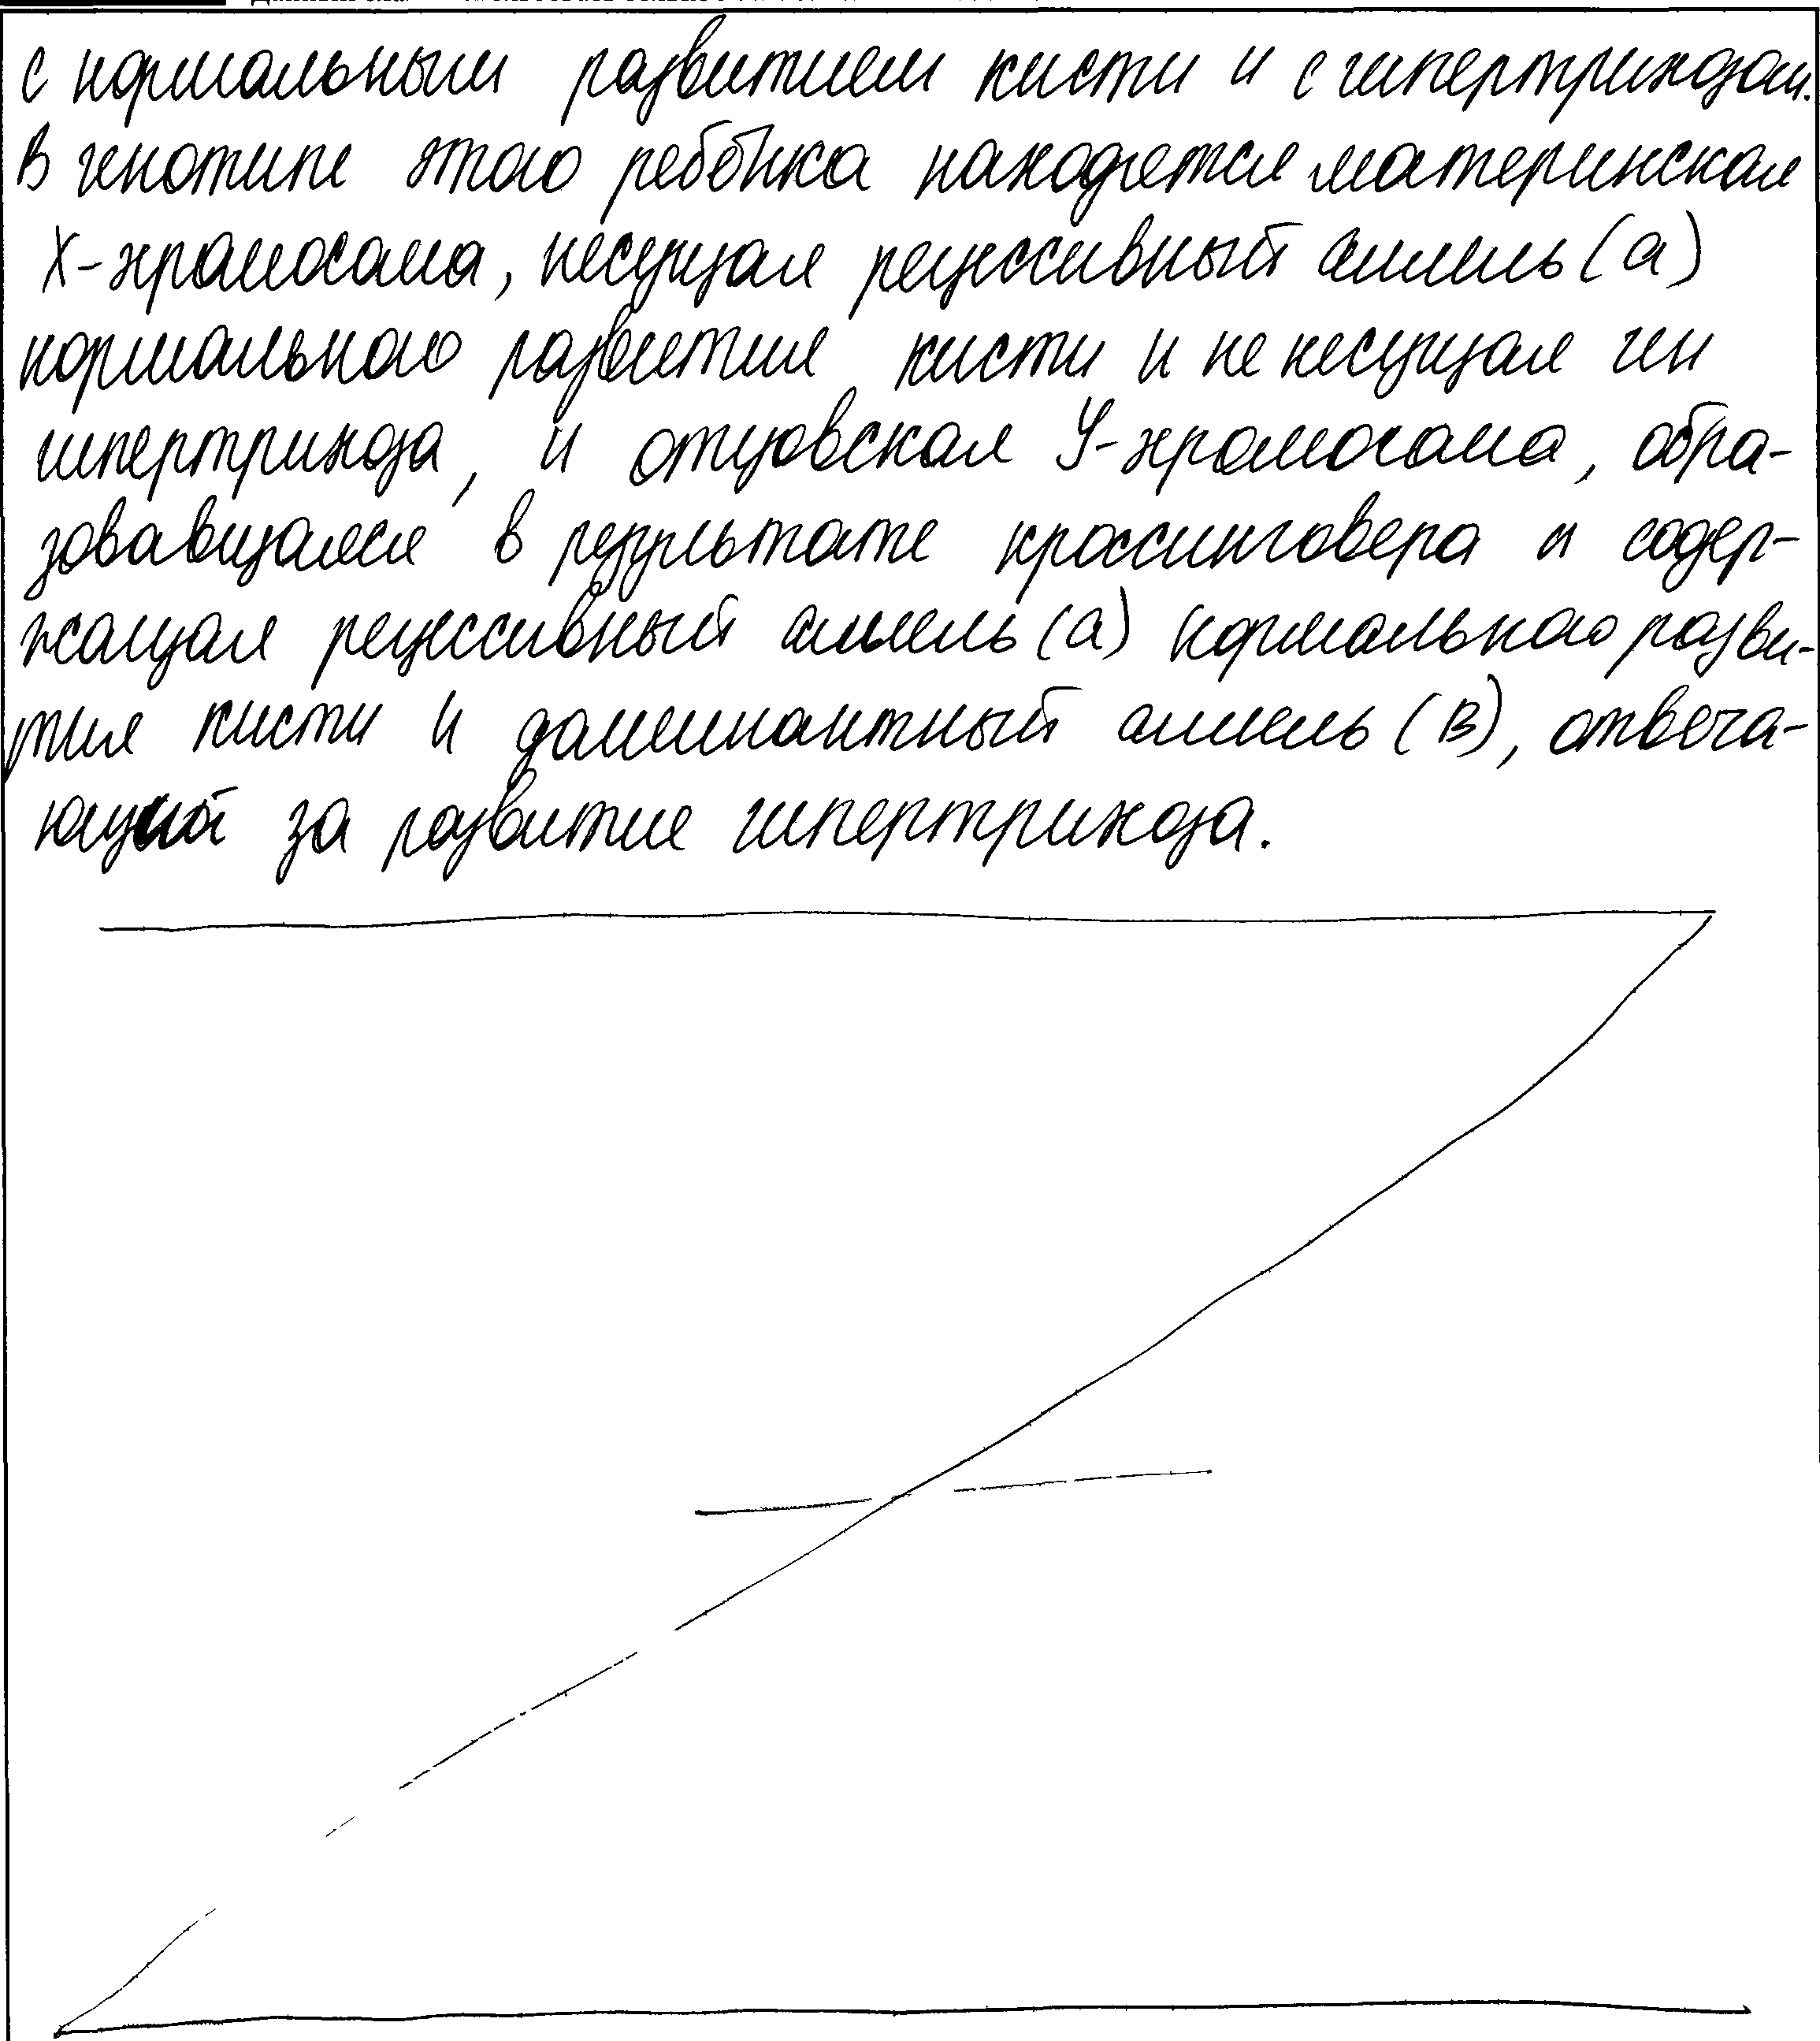 с нормальным развитием кисти и с гипертрихозом.
В генотипе этого ребёнка находятся материнская
X-хромосома, несущая рецессивный аллель (a)
нормального развития кисти и не несущая ген
гипертрихоза, и отцовская Y-хромосома, обра-
зовавшаяся в результате кроссинговера и содер-
жащая рецессивный аллель (a) нормального разви-
тия кисти и доминантный аллель (B), отвеча-
ющий за развитие гипертрихоза.